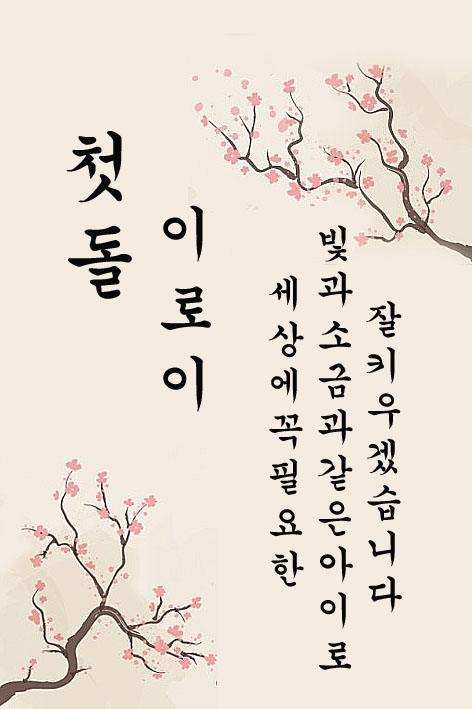 첫돌
이로이
세상에꼭필요한
빛과소금과같은아이로
잘키우겠습니다